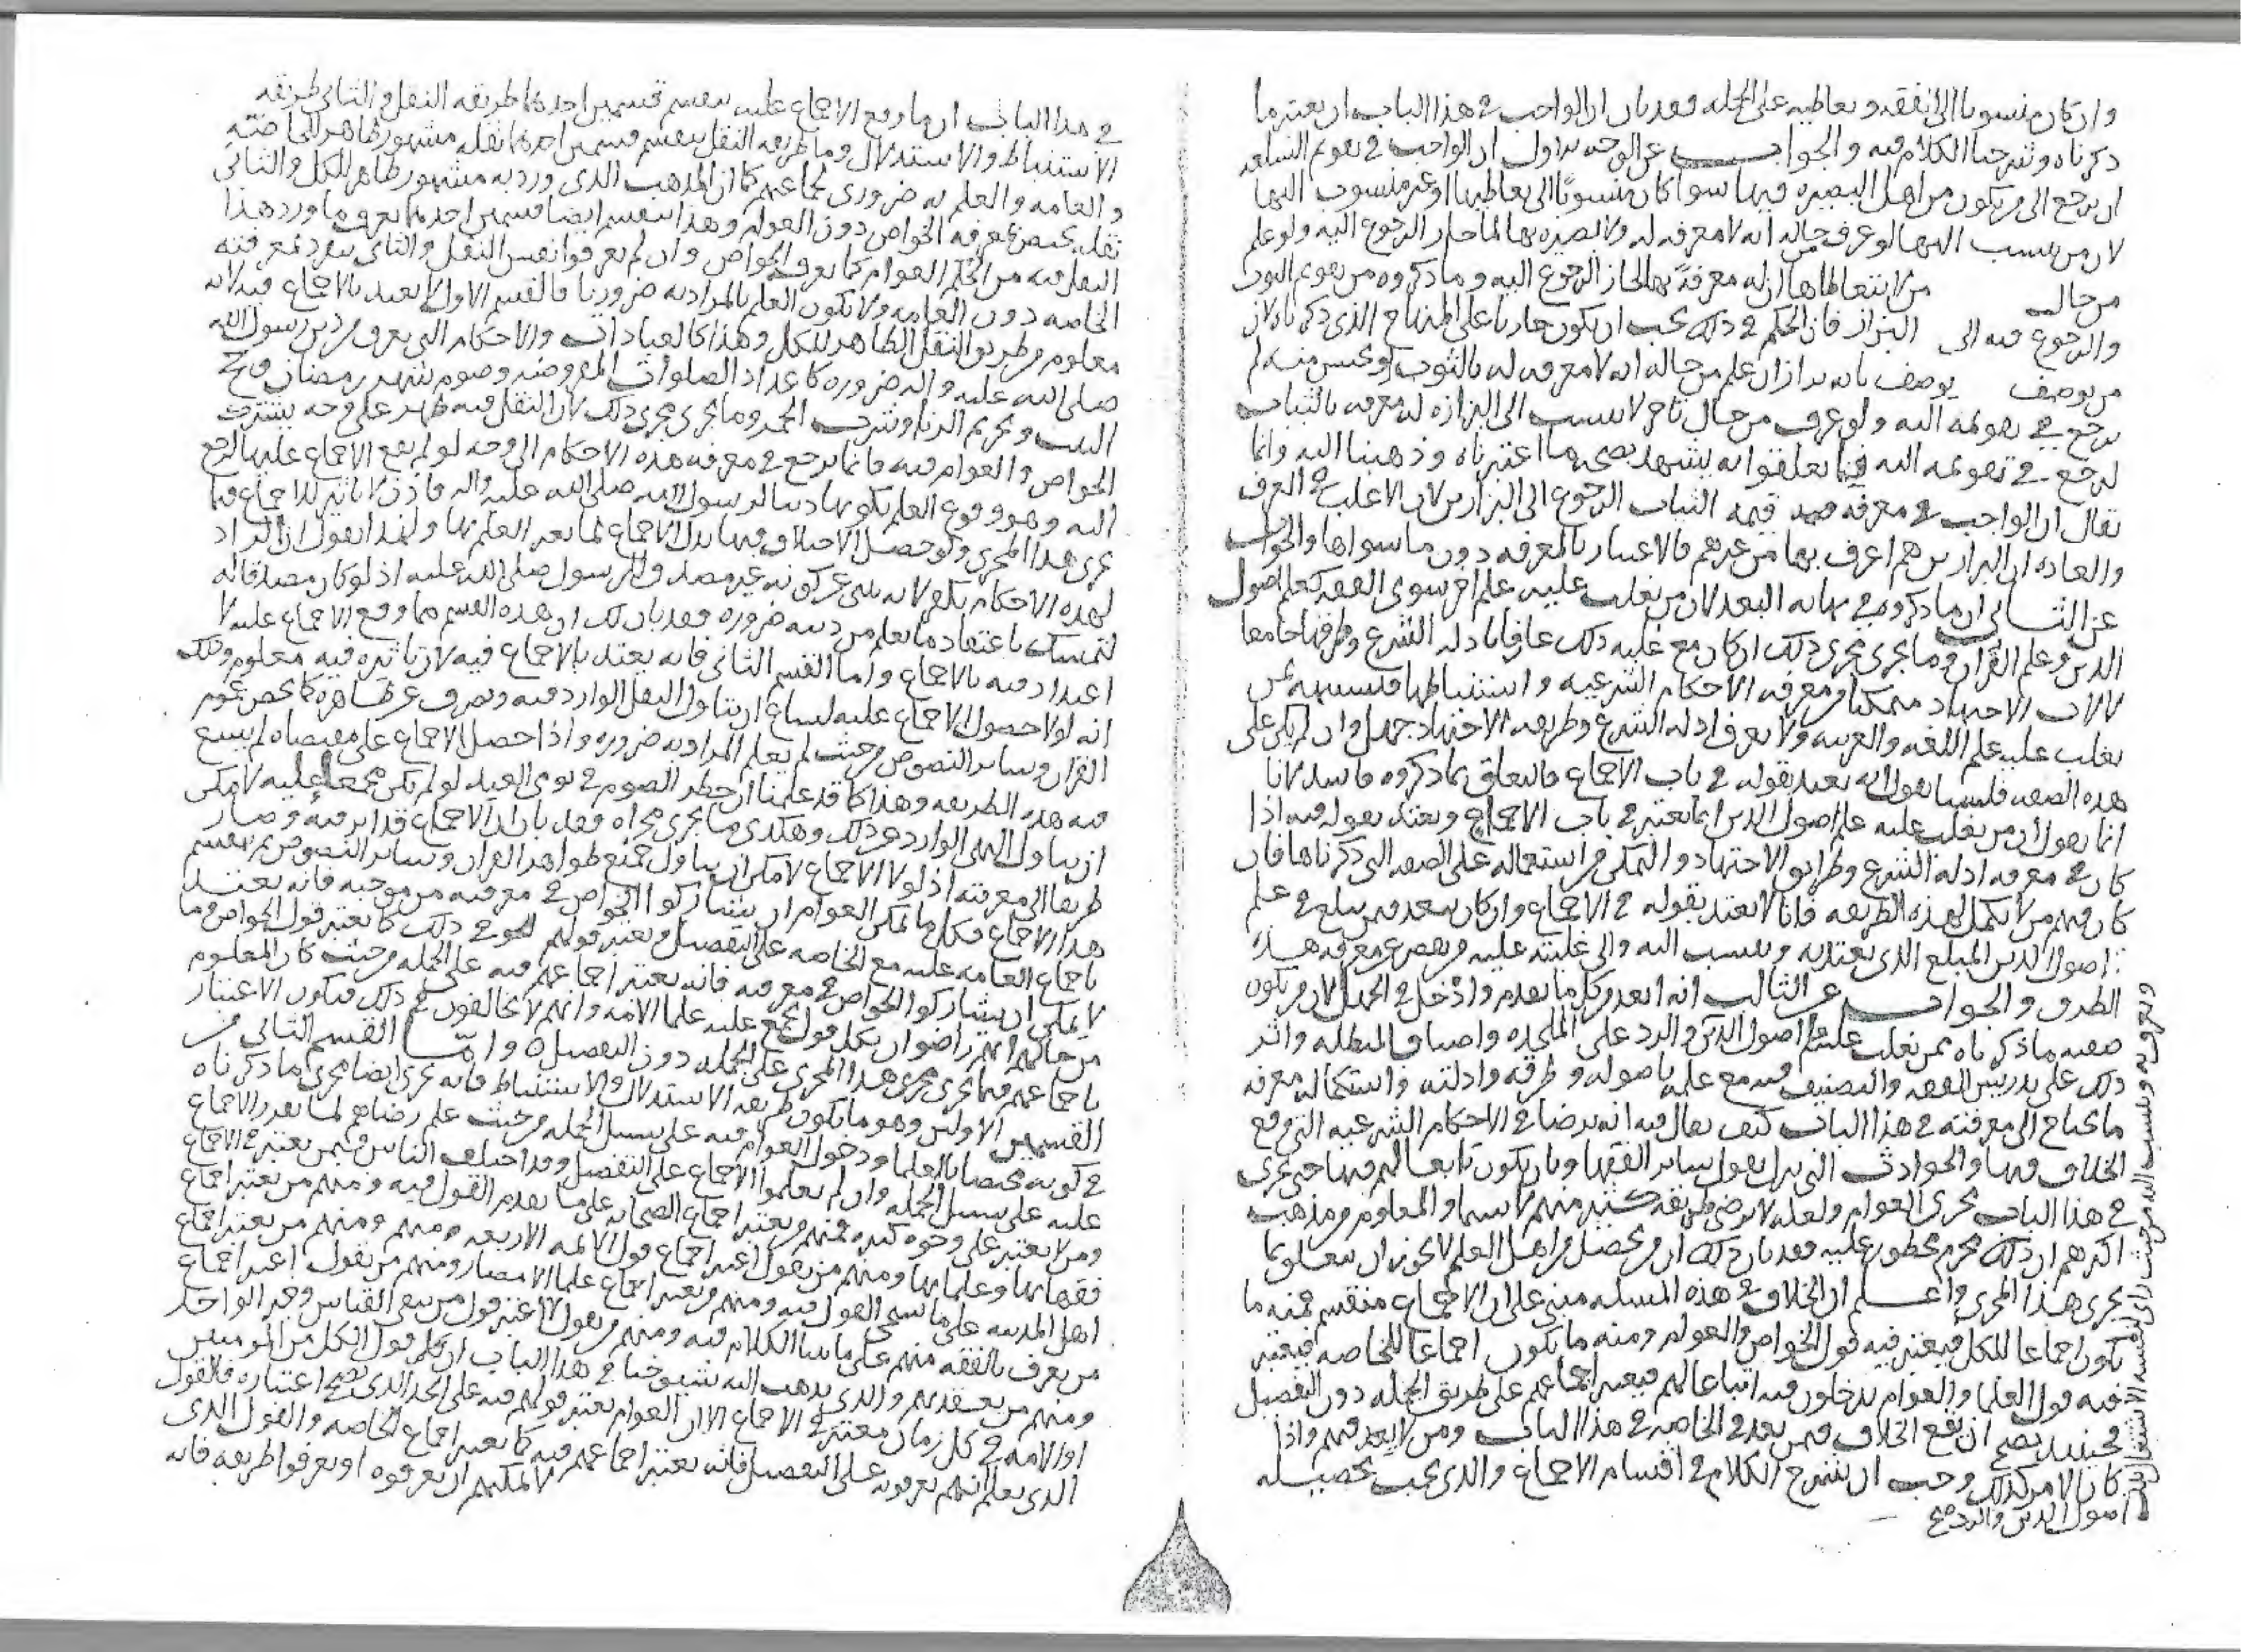 وان كان منسوبا الى الفقه وتعاطيه على الجملة فقد بان ان الواجب في هذا الباب ان يعتبر ما
ذكرناه وشرحنا الكلام فيه والجواب عن الوجه الاول ان الواجب في تقويم السلعه
ان يرجع الى من يكون من اهل البصيره فيها سوا كان منسوبا الى تعاطيها او غير منسوب اليها
لان من ينسب اليها لو عرف من حاله انه لا معرفه له ولا بصيره بها لما جاز الرجوع اليه ولو علم
من حال من لا يتعاطاها ان له معرفة بها لجاز الرجوع اليه وما ذكروه من تقويم الثوب
والرجوع فيه الى البزاز فان الحكم في ذلك يجب ان يكون جاريا على المنهاج الذي ذكرناه لان
من يوصف يوصف بانه بزاز ان علم من حاله انه لا معرفه له بالثوب لم
يرجع في تقويمه اليه ولو عرف من حال تاجر لا ينسب الى البزازه له معرفه بالثياب
لرجع في تقويمه اليه فما تعلقوا به يشهد بصحه ما اعتبرناه وذهبنا اليه وانما
يقال ان الواجب في معرفه قيمه الثياب الرجوع الى البزازين لان الاغلب في العرف
والعاده ان البزازين هم اعرف بها من غيرهم فالاعتبار بالمعرفه دون ما سواها والجواب
عن الثاني ان ما ذكروه في نهايه البعد لان من يغلب عليه علم اخر سوى الفقه كعلم اصول
الدين وعلم القران وما يجري مجرى ذلك ان كان مع غلبه ذلك عارفا بادله الشرع وطرقها جامعا
لالات الاجتهاد متمكنا من معرفه الاحكام الشرعيه واستنباطها فتشبيهه بمن
يغلب عليه علم اللغه والعربيه ولا يعرف ادله الشرع وطريقه الاجتهاد جهل وان لم يكن على
هذه الصفه فلسنا نقول انه يعتد بقوله في باب الاجماع فالتعلق بما ذكروه فاسد لانا
انما نقول ان من يغلب عليه علم اصول الدين انما يعتبر في باب الاجماع ويعتد بقوله فيه اذا
كان في معرفه ادله الشرع وطرايق الاجتهاد والتمكن من استعماله على الصفه التي ذكرناها فان
كان فيهم من لا يكمل لهذه الطريقه فانا لا نعتد بقوله في الاجماع وان كان يعد فيمن يبلغ في علم
اصول الدين المبلغ الذي يعتد به وينسب اليه والى غلبته عليه ويقصر عن معرفه هذه
الطرق والجواب عن الثالث انه ابعد من كل ما تقدم وادخل في الجهل لان من يكون
صفته ما ذكرناه ممن يغلب عليه علم اصول الدين والرد على الملحده واصناف المبطله واثر
ذلك على تدريس الفقه والتصنيف فيه مع علمه باصوله وطرقه وادلته واستكماله معرفه
ما يحتاج الى معرفته في هذا الباب كيف يقال فيه انه يرضا في الاحكام الشرعيه التي وقع
الخلاف فيها والحوادث التي تنزل بقول ساير الفقها وبان يكون تابعا لهم فيها حتى يجري
في هذا الباب مجرى العوام ولعله لا يرضى طريقه كثير منهم لا سيما والمعلوم من مذهب
اكثرهم ان ذلك محرم محظور عليه فقد بان ذلك ان من يحصل من اهل العلم لا يجوز ان يتعلق بما
يجري هذا المجرى واعلم ان الخلاف في هذه المسئله مبني على ان الاجماع منقسم فمنه ما
يكون اجماعا للكل فيعتبر فيه قول الخواص والعوام ومنه ما يكون اجماعا للخاصه فيعتبر
فيه قول العلما والعوام يدخلون فيه اتباعا لهم فيعتبر اجماعهم على طريق الجمله دون التفصيل
فحينئذ يصح ان يقع الخلاف فيمن يعد في الخاصه في هذا الباب ومن لا يعد فيهم واذا
كان الامر كذلك وجب ان نشرح الكلام في اقسام الاجماع والذي يجب تحصيله
في هذا الباب ان ما وقع الاجماع عليه ينقسم قسمين احدهما طريقه النقل والثاني طريقه
الاستنباط والاستدلال وما طريقه النقل ينقسم قسمين احدهما نقله مشهور ظاهر للخاصه
والعامه والعلم به ضروري لجماعتهم كما ان المذهب الذي ورد به مشهور ظاهر للكل والثاني
نقله يختص بمعرفه الخواص دون العوام وهذا ينقسم ايضا قسمين احدهما يعرف ما ورد هذا
النقل فيه من الحكم العوام كما يعرفه الخواص وان لم يعرفوا نفس النقل والثاني ينفرد بمعرفته
الخاصه دون العامه ولا يكون العلم بالمراد به ضروريا فالقسم الاول لا يعتد بالاجماع فيه لانه
معلوم من طريق النقل الظاهر للكل وهذا كالعبادات والاحكام التي يعرف من دين رسول الله
صلى الله عليه واله ضروره كاعداد الصلوات المفروضه وصوم شهر رمضان وحج
البيت وتحريم الزنا وشرب الخمر وما يجري مجرى ذلك لان النقل فيه ظهر على وجه يشترك
الخواص والعوام فيه فانما يرجع في معرفه هذه الاحكام الى وجه لو لم يقع الاجماع عليها لرجع
اليه وهو وقوع العلم بكونها دينا لرسول الله صلى الله عليه واله فاذن لا تاثير للاجماع فيما
يجري هذا المجرى ولو حصل الاختلاف فيها بدل الاجماع لما تغير العلم بها ولهذا نقول ان الراد
لهذه الاحكام يكفر لانه ينبي عن كونه غير مصدق للرسول صلى الله عليه اذ لو كان مصدقا له
لتمسك باعتقاد ما يعلم من دينه ضروره فقد بان لك ان هذه القسم مما وقع الاجماع عليه لا
اعتداد فيه بالاجماع واما القسم الثاني فانه يعتد بالاجماع فيه لان تاثيره فيه معلوم وذلك
انه لولا حصول الاجماع عليه لساغ ان يتاول النقل الوارد فيه ويصرف عن ظاهره كما يخص عموم
القران وساير النصوص من حيث لم يعلم المراد به ضروره واذا حصل الاجماع على مقتضاه لم يسغ
فيه هذه الطريقه وهذا كما قد علمنا ان حظر الصوم في يومي العيد لو لم يكن مجمعا عليه لامكن
ان يتاول النهي الوارد عن ذلك وهكذى ما يجري مجراه فقد بان ان الاجماع قد اثر فيه وصار
طريقا الى معرفته اذ لولا الاجماع لامكن ان يتاول جميع ظواهر القران وساير النصوص ثم ينقسم
هذا الاجماع فكل ما تمكن العوام ان يشاركوا الخواص في معرفته من موجبه فانه يعتد
باجماع العامه عليه مع الخاصه على التفصيل ويعتبر قولهم في ذلك كما يعتبر قول الخواص وما
لا يمكن ان يشاركوا الخواص في معرفته فانه يعتبر اجماعهم فيه على الجمله من حيث كان المعلوم
من حالهم انهم راضوان بكل قول يجمع عليه علما الامه وانهم لا يخالفون في ذلك فيكون الاعتبار
باجماعهم فيما يجري هذا المجرى على الجمله دون التفصيل ه واما القسم الثاني من
القسمين الاولين وهو ما يكون طريقه الاستدلال والاستنباط فانه يجري ايضا مجرى ما ذكرناه
في كونه مختصا بالعلما ودخول العوام فيه على سبيل الجمله من حيث علم رضاهم لما تقرر الاجماع
عليه على سبيل الجمله وان لم يعلموا الاجماع على التفصيل وقد اختلف الناس فيمن يعتبر في الاجماع
ومن لا يعتبر على وجوه كثيره فمنهم من يعتبر اجماع الصحابه على ما تقدم القول فيه ومنهم من يعتبر اجماع
فقهائها وعلمائها ومنهم من يقول اعتبر اجماع قول الائمه الاربعه ومنهم ومنهم من يعتبر اجماع
اهل المدينه على ما نبين القول فيه ومنهم من يعتبر اجماع علما الامصار ومنهم من يقول اعتبر اجماع
من يعرف بالفقه منهم على ما بينا الكلام فيه ومنهم من يقول لا اعتبر قول من ينفي القياس وخبر الواحد
ومنهم من يعتقدهم والذي يذهب اليه شيوخنا في هذا الباب ان قول الكل من المومنين
او الامه في كل زمان معتبر في الاجماع الا ان العوام يعتبر قولهم فيه على الحد الذي يصح اعتباره فالقول
الذي يعلم انهم يعرفونه على التفصيل فانه يعتبر اجماعهم فيه كما يعتبر اجماع الخاصه والقول الذي
لا يمكنهم ان يعرفوه او يعرفوا طريقه فانه